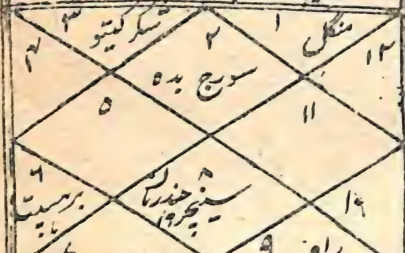 ۳ شکر کیتو ۲ ۱ منگل
۴ سورج بدہ ۱۲
۵ ۱۱
۶ ۸
برہسپت سنیچر چندرماں
۹ راہ